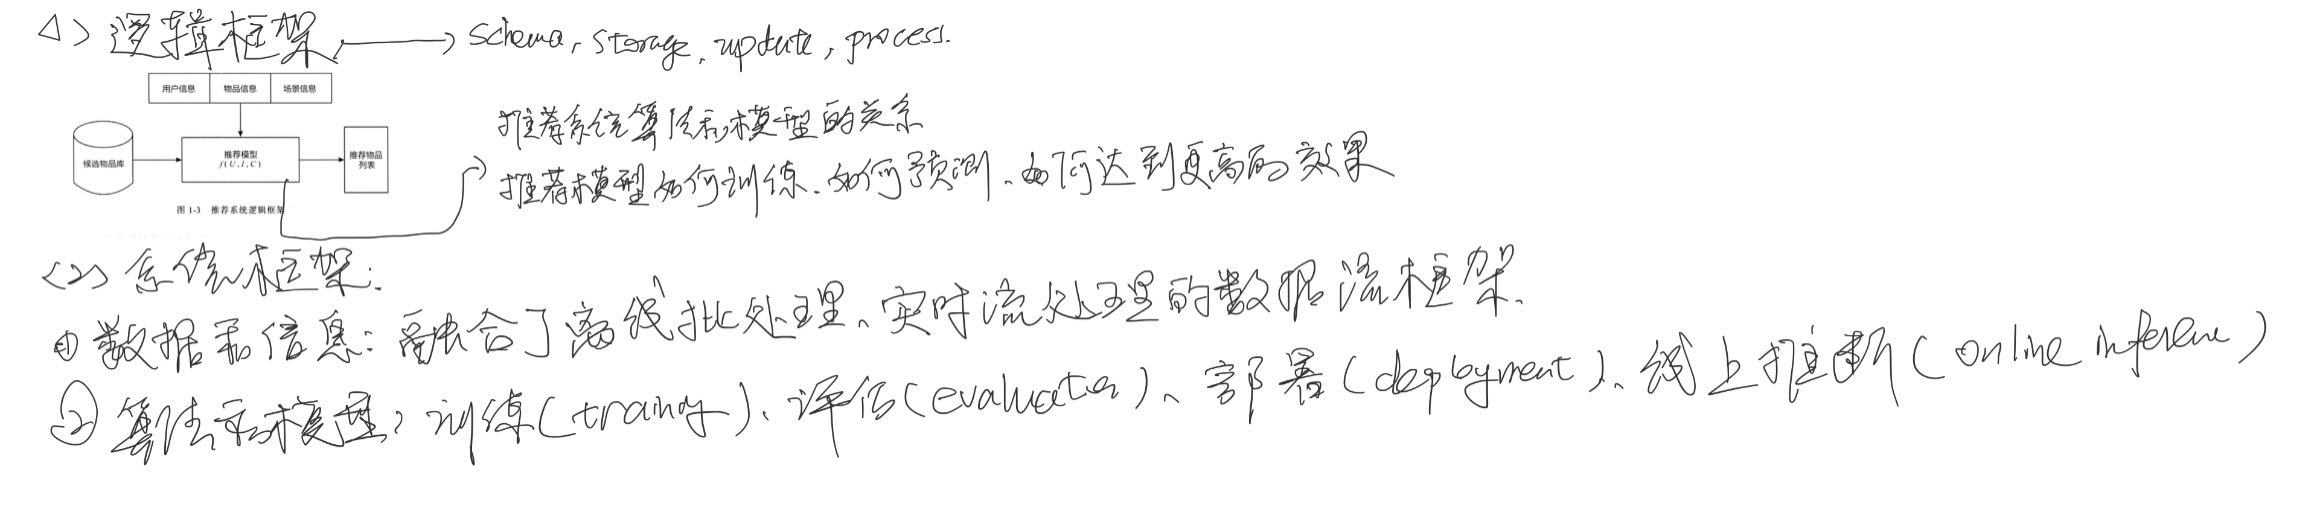 <1> 逻辑框架. → schema, storage, update, process.
用户信息 物品信息 场景信息
候选物品库
推荐模型
f(U,I,C)
推荐物品
列表
图 1-3 推荐系统逻辑框架
推荐系统算法和模型的关系
推荐模型如何训练、如何预测、如何达到更高的效果
<2> 系统框架:
① 数据和信息: 融合了离线批处理、实时流处理的数据流框架.
② 算法和模型: 训练(training)、评估(evaluation)、部署(deployment)、线上推断(online inference)